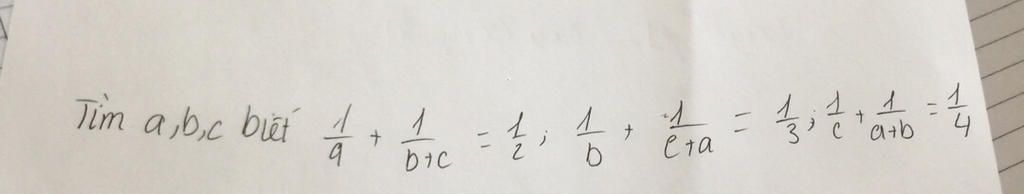 Tìm a,b,c biết 1/a + 1/(b+c) = 1/2; 1/b + 1/(c+a) = 1/3; 1/c + 1/(a+b) = 1/4